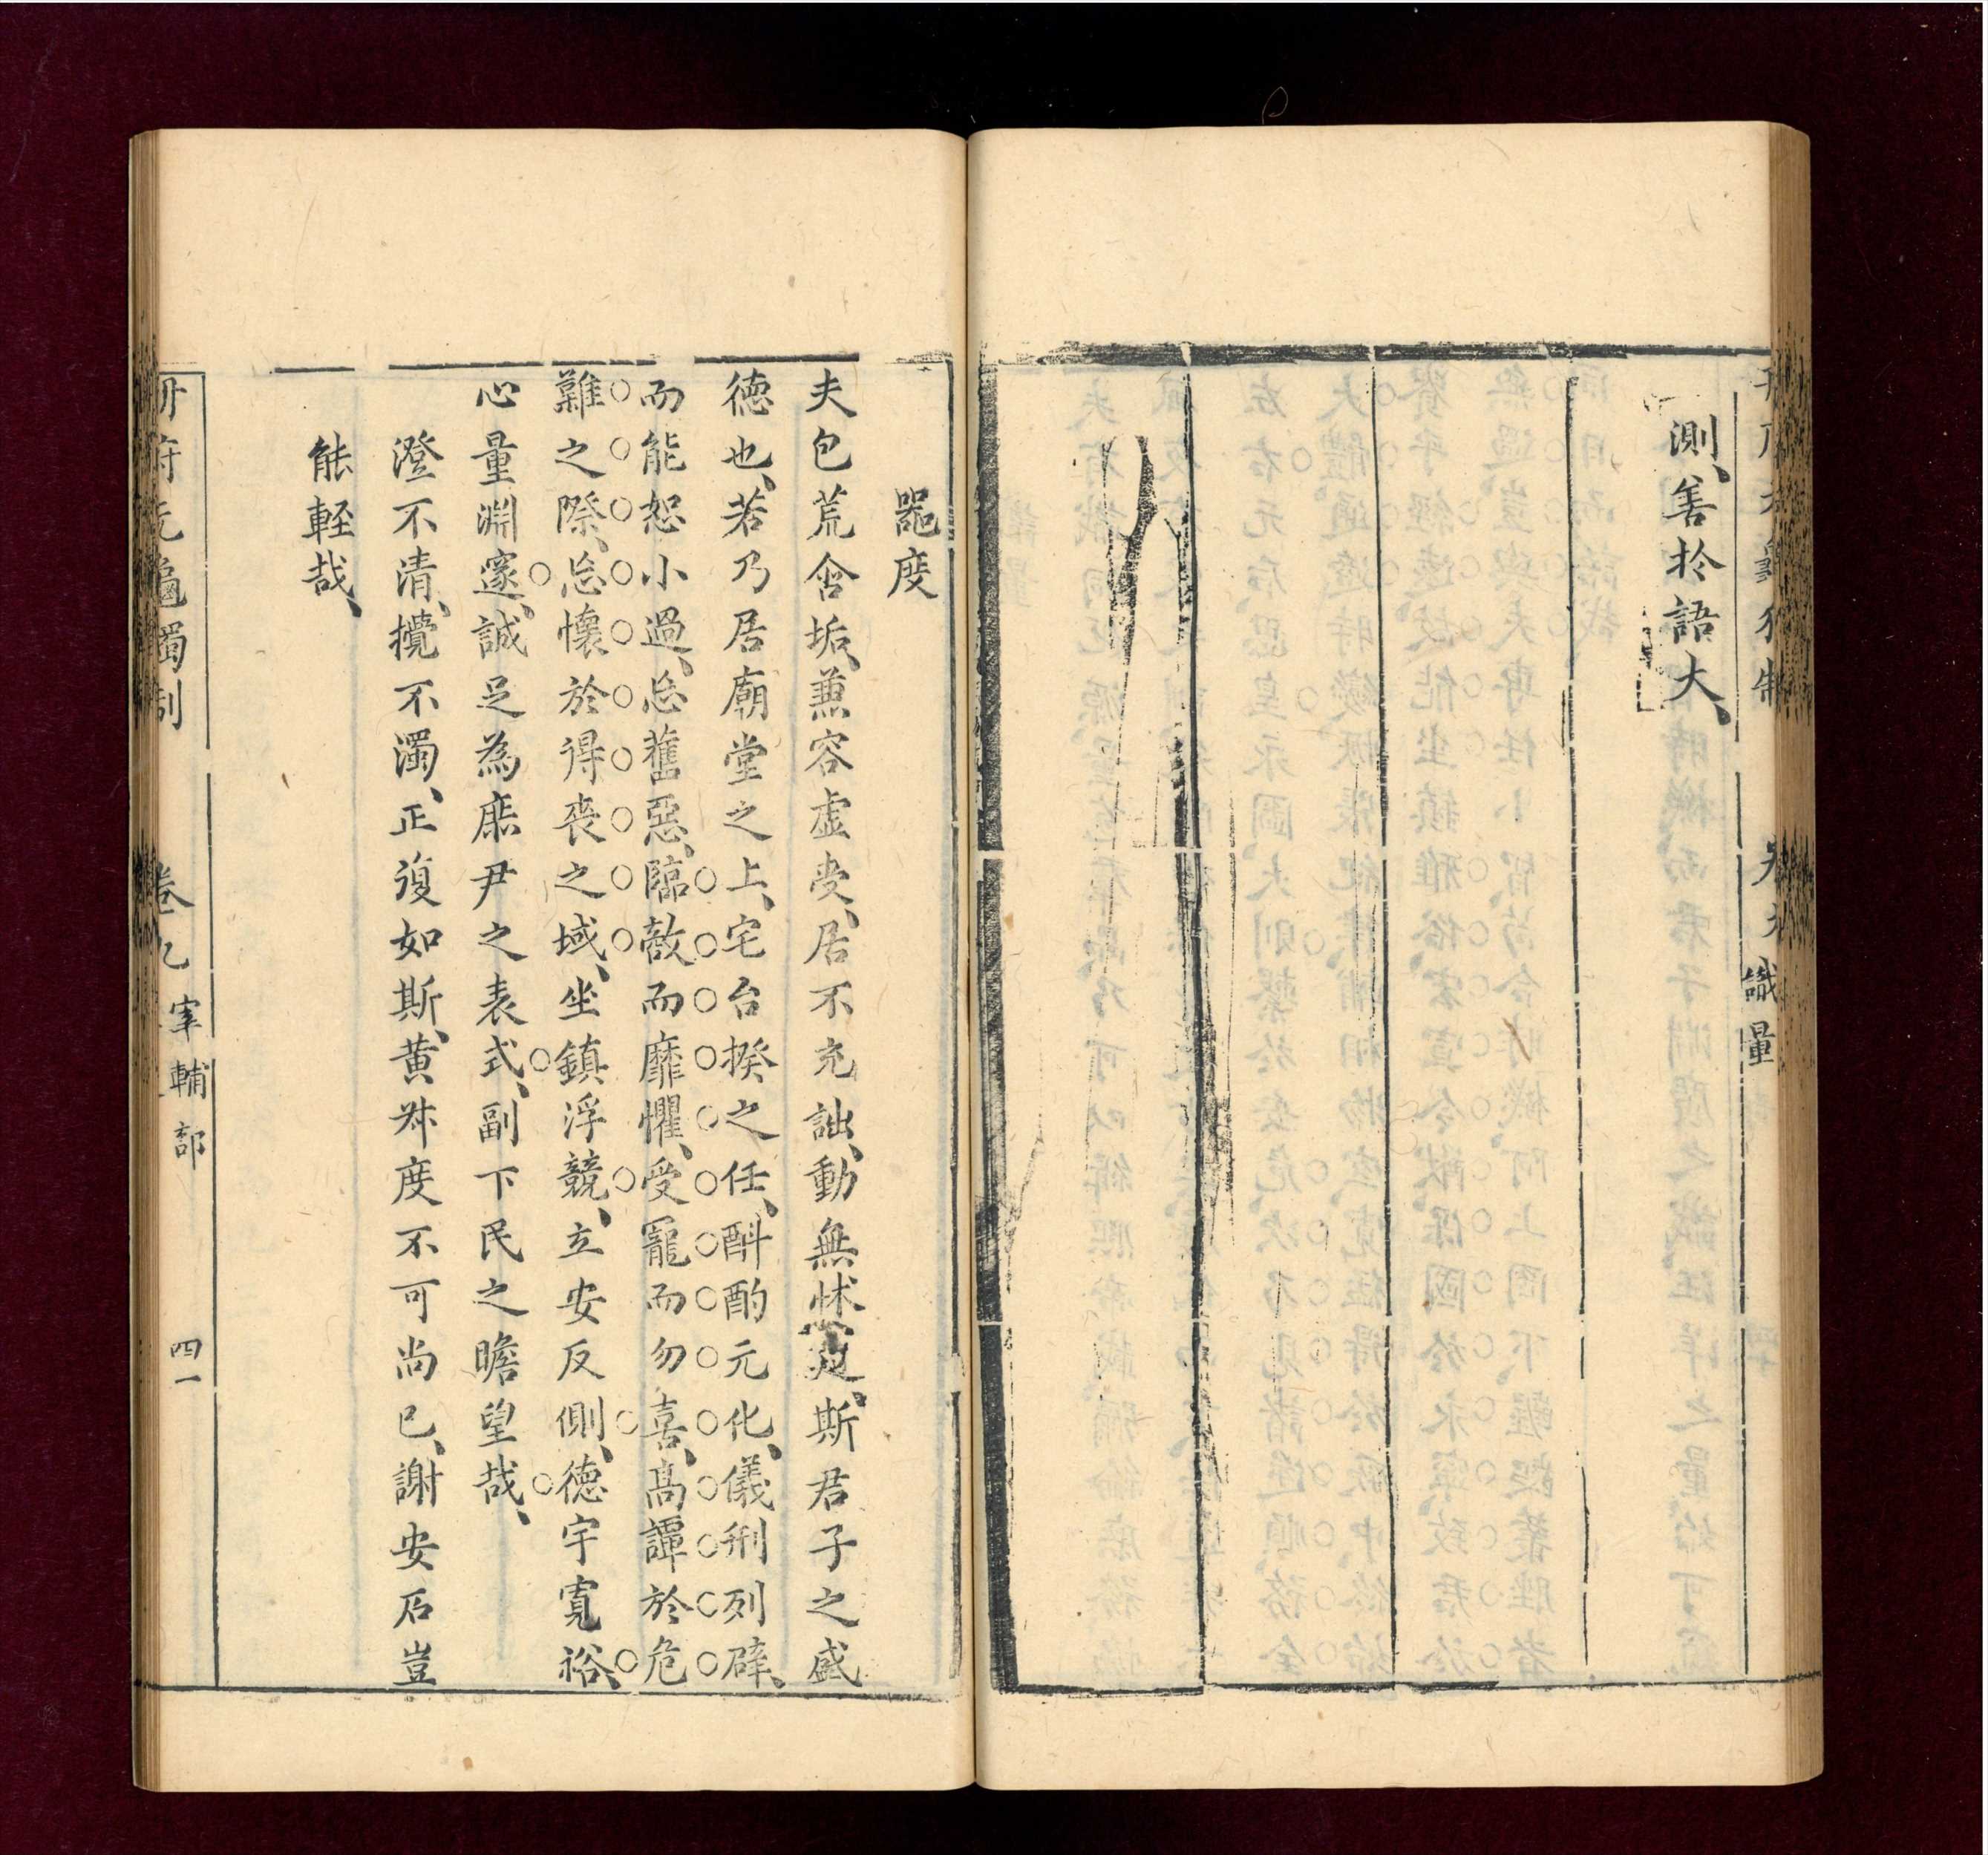 測、善扵語大、
識量
噐度
夫包荒含垢、兼容虚受、居不充詘、動無怵迫、斯君子之盛
德也、若乃居廟堂之上、宅台揆之任、酙酌元化、儀刑列辟、
而能恕小過、忘舊惡、臨敵而靡懼、受寵而勿喜、高譚於危
難之際、忘懷於得丧之域、坐鎮浮競、立安反側、德宇寬裕、
心量淵邃、誠足為庶尹之表式、副下民之瞻望哉、
澄不清、攪不濁、正復如斯、黄叔度不可尚已、謝安石豈
能輕哉、
冊府元龜獨制 卷九 宰輔部 四一